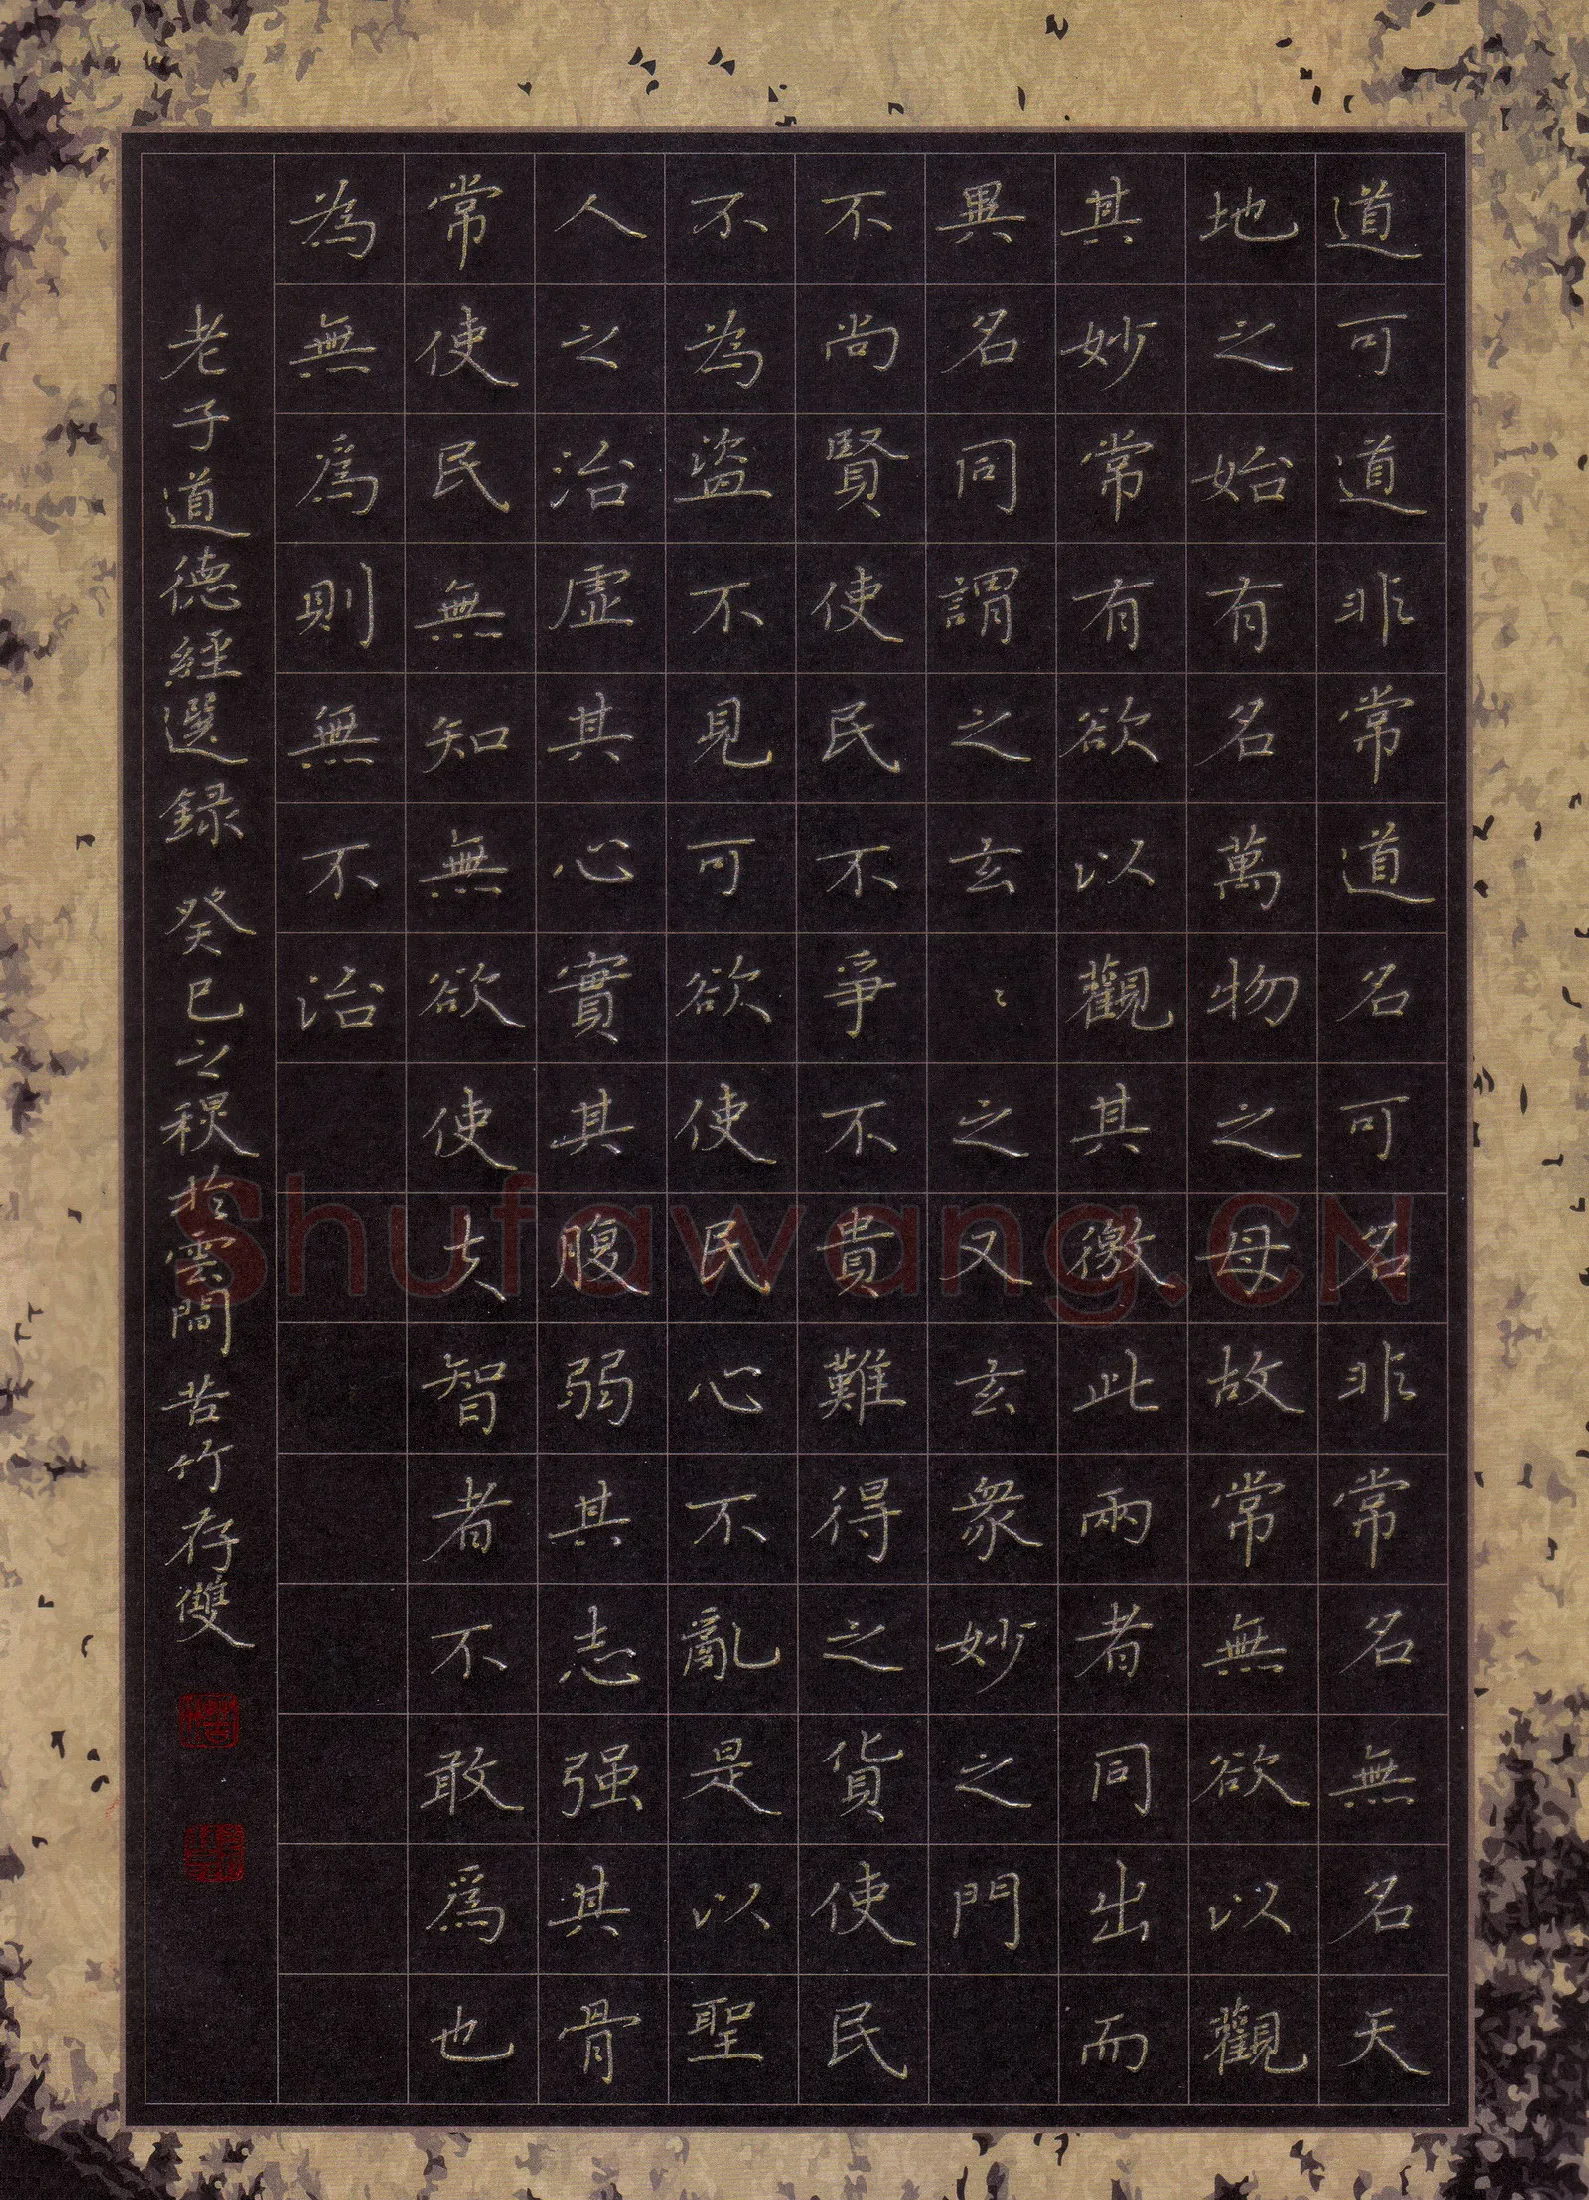 道可道非常道名可名非常名無名天
地之始有名萬物之母故常無欲以觀
其妙常有欲以觀其徼此兩者同出而
異名同謂之玄〻之又玄衆妙之門
不尚賢使民不爭不貴難得之貨使民
不為盜不見可欲使民心不亂是以聖
人之治虛其心實其腹弱其志强其骨
常使民無知無欲使夫智者不敢爲也
為無爲則無不治
老子道德經選録 癸巳之秋於雲間 苦竹存雙
Shufawang.CN